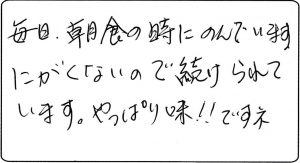 毎日、朝食の時にのんでいます
にがくないので続けられて
います。やっぱり味!!ですネ